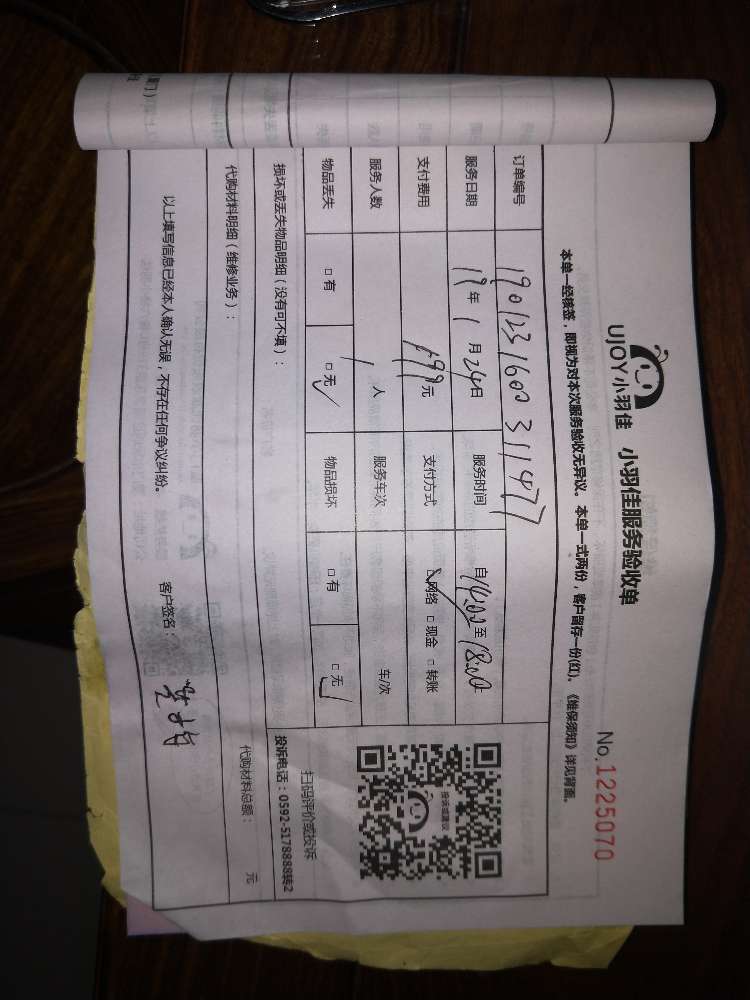 UJOY小羽佳 小羽佳服务验收单
No.1225070
本单一经核签，即视为对本次服务验收无异议。本单一式两份，客户留存一份(红)。《维保须知》详见背面。
订单编号 1901231600311477
服务日期 19年1月24日 服务时间 自14:00至18:00
支付费用 199元 支付方式 ☑网络 □现金 □转账
服务人数 1人 服务车次 车/次
物品丢失 □有 □无✓ 物品损坏 □有 □无✓
投诉或建议
扫码评价或投诉
投诉电话：0592-5178888转2
损坏或丢失物品明细（没有可不填）：
代购材料明细（维修业务）： 代购材料总额： 元
以上填写信息已经本人确认无误，不存在任何争议纠纷。 客户签名：